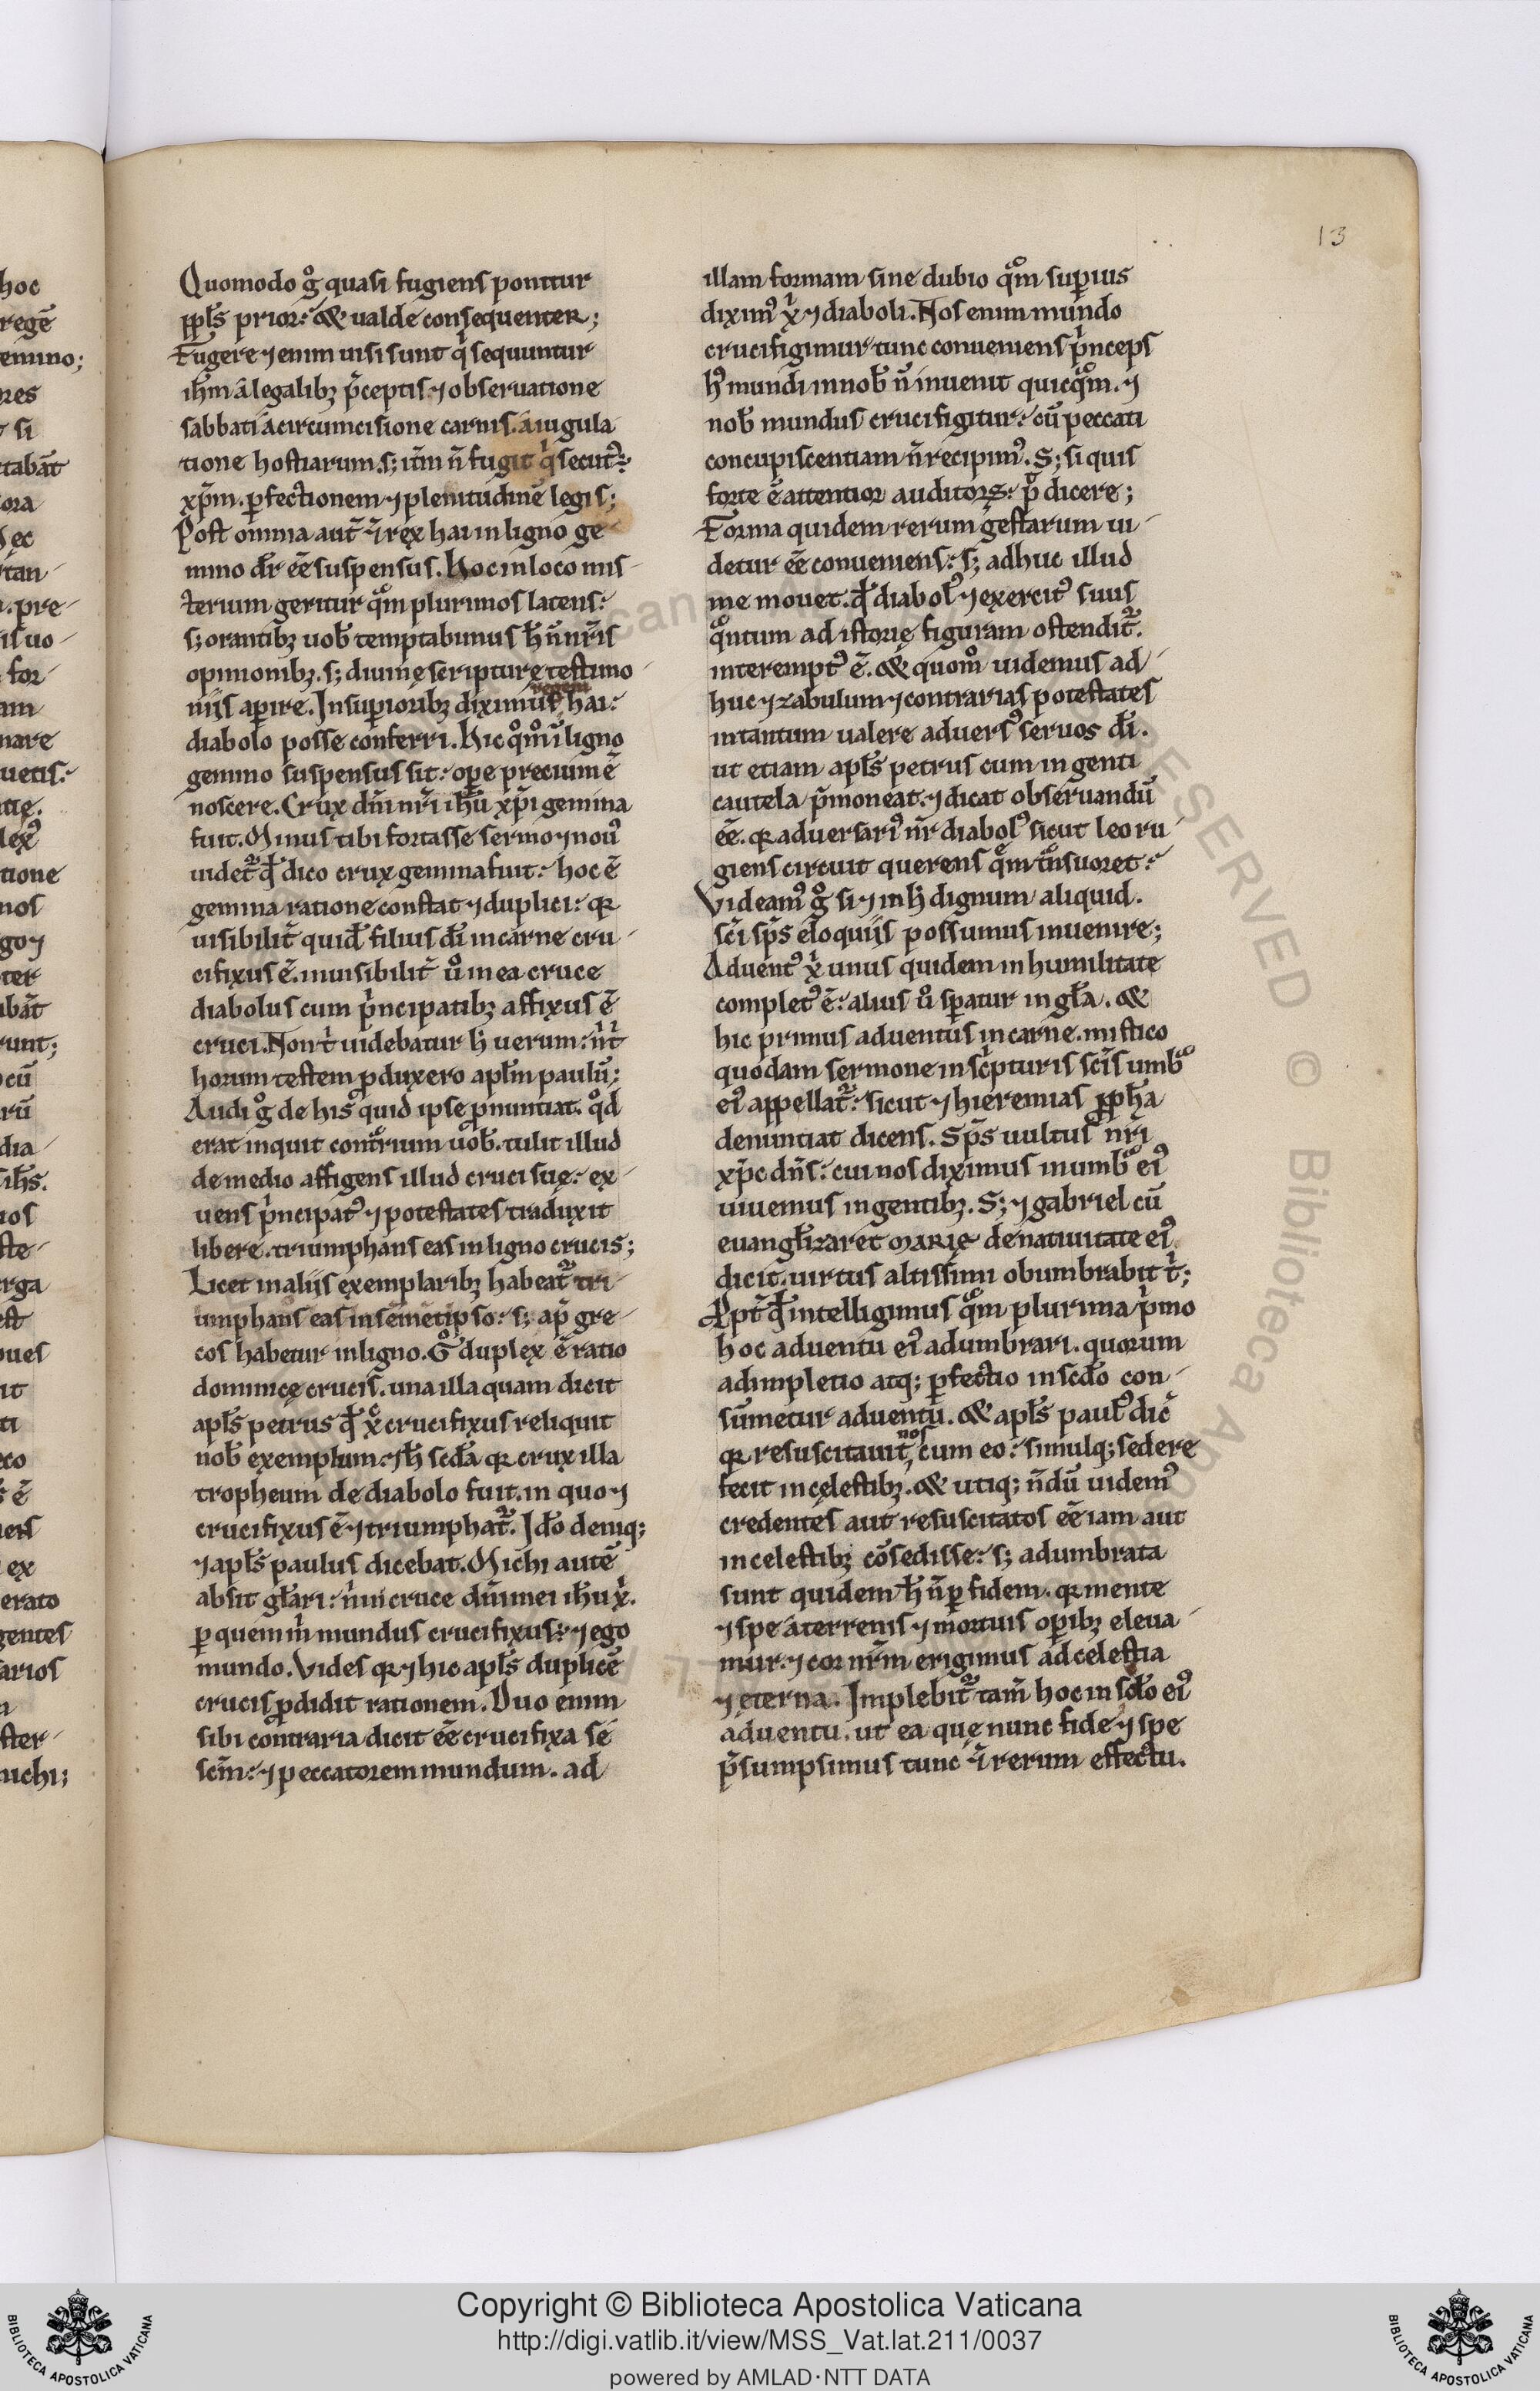 13
hoc
regē
emino;
ores
si
tabāt
ora
ec
tan-
. pre-
is uo-
for-
am
nare
uetis.
lexꝰ
tione
nos
go ⁊
ter
bāt
runt;
cū
rū
dia-
ih̅s.
uos
ste-
erga
est
oues
it
ti
eco
ē
uers
ex
erato
gentes
arios
ster-
uchi;
Quomodo gͦ quasi fugiens ponitur
ppl̅s prior: & ualde consequenter;
Fugere ⁊enim uisi sunt qͥ sequuntur
ih̅m a legalibꝫ p̄ceptis ⁊ obseruatione
sabbati a circumcisione carnis. a iugula-
tione hostiarum. sꝫ it̅m n̄ fugit qͥ secutꝰ ÷
xp̅m. ꝑfectionem ⁊ plenitudinē legis;
Post omnia aut̅ ⁊̄ rex hai in ligno ge-
mino dr̅ eē suspensus. Hoc in loco mis-
terium geritur qͦm plurimos latens:
sꝫ orantibꝫ uob̅ temptabimus h̅ n̄ nr̅is
opinionibꝫ. sꝫ diuinę scripturę testimo-
niis aꝑire. In suꝑioribꝫ diximus regem hai:
diabolo posse conferri. Hic qͦmͦ ī ligno
gemino suspensus sit: oꝑe precium ē
noscere. Crux dn̅i nr̅i ih̅u xp̅i gemina
fuit. Minus tibi fortasse sermo ⁊ nouꝰ
uidet᷑ qd̅ dico crux gemina fuit: hoc ē
gemina ratione constat ⁊ duplici: qꝛ
uisibilit̅ quid̅ filius dī in carne cru-
cifixus ē. inuisibilit̅ uͦ in ea cruce
diabolus cum pͥncipatibꝫ affixus ē
cruci. Non tͥ uidebatur h̅ uerum: nͥ tͥ
horum testem ꝓduxero apl̅m paulū:
Audi gͦ de his quid ipse ꝓnuntiat. qͦd
erat inquit contͣrium uob̅. tulit illud
de medio affigens illud cruci suę: ex-
uens pͥncipatꝰ ⁊ potestates traduxit
libere. triumphans eas in ligno crucis;
Licet in aliis exemplaribꝫ habeat᷑ tri-
umphans eas in semetipso: sꝫ ap̄ gre-
cos habetur in ligno. Gͦ duplex ē ratio
dominicę crucis. una illa quam dicit
apl̅s petrus qd̅ xͨ crucifixus reliquit
nob̅ exemplum: ⁊ h̅ sc̅da qꝛ crux illa
tropheum de diabolo fuit. in quo ⁊
crucifixus ē ⁊ triumphat᷑. Id̅o deniqꝫ
⁊ apl̅s paulus dicebat. Michi autē
absit gl̅ari: nͥ in cruce dn̅i mei ih̅u xͥ.
ꝑ quem mͥ mundus crucifixus ÷ ⁊ ego
mundo. Vides qꝛ ⁊ hic apl̅s duplicē
crucis ꝓdidit rationem. Duo enim
sibi contraria dicit eē crucifixa se
sc̅m: ⁊ peccatorem mundum. ad
illam formam sine dubio qͣm suꝑius
diximꝰ xͥ ⁊ diaboli. Nos enim mundo
crucifigimur tunc conueniens pͥnceps
hꝰ mundi in nob̅ n̄ inuenit quicqͣm. ⁊
nob̅ mundus crucifigitur: cū peccati
concupiscentiam n̄ recipimꝰ. Sꝫ si quis
forte ē attentior auditorꝫ: pͦ dicere;
Forma quidem rerum gestarum ui-
detur eē conueniens: sꝫ adhuc illud
me mouet. qd̅ diabolꝰ ⁊ exercitꝰ suus
qͣntum ad istorię figuram ostendit᷑.
interemptꝰ ē. & quomͦ uidemus ad-
huc ⁊ zabulum ⁊ contrarias potestates
in tantum ualere aduersꝰ seruos dī.
ut etiam apl̅s petrus cum ingenti
cautela p̄moneat. ⁊ dicat obseruandū
eē. qꝛ aduersariꝰ nr̅ diabolꝰ sicut leo ru-
giens circuit querens qͣm tͣnsuoret:
Videamꝰ gͦ si ⁊ in h̅ dignum aliquid.
sc̅i sp̅s eloquiis possumus inuenire;
Aduentꝰ xͥ unus quidem in humilitate
completꝰ ē: alius uͦ sꝑatur in gl̅a. &
hic primus aduentus in carne. mistico
quodam sermone in scͥpturis sc̅is umbͣ
eiꝰ appellat᷑: sicut ⁊ hieremias ꝓph̅a
denuntiat dicens. Sp̅s uultus nr̅i
xp̅c dn̅s: cui nos diximus in umbͣ eiꝰ
uiuemus in gentibꝫ. Sꝫ ⁊ gabriel cū
euangl̅izaret marię de natiuitate eiꝰ
dicit. uirtus altissimi obumbrabit tͥ;
Ꝓpt̅ qd̅ intelligimus qͣm plurima pͥmo
hoc aduentu eiꝰ adumbrari. quorum
adimpletio atqꝫ ꝑfectio in sc̅do con-
sūmetur aduentu. & apl̅s paulꝰ dic̅
qꝛ resuscitauit nos cum eo: simulqꝫ sedere
fecit in cęlestibꝫ. & utiqꝫ n̄dū uidemꝰ
credentes aut resuscitatos eē iam aut
in celestibꝫ cōsedisse: sꝫ adumbrata
sunt quidem h̅ n̄ ꝑ fidem. qꝛ mente
⁊ spe a terrenis ⁊ mortuis oꝑibꝫ eleua-
mur. ⁊ cor nr̅m erigimus ad celestia
⁊ ęterna. Implebit᷑ tam̅ hoc in sc̅do eiꝰ
aduentu. ut ea quę nunc fide ⁊ spe
p̄sumpsimus tunc ⁊̄ rerum effectu.
Copyright © Biblioteca Apostolica Vaticana
http://digi.vatlib.it/view/MSS_Vat.lat.211/0037
powered by AMLAD·NTT DATA
BIBLIOTECA APOSTOLICA VATICANA
BIBLIOTECA APOSTOLICA VATICANA